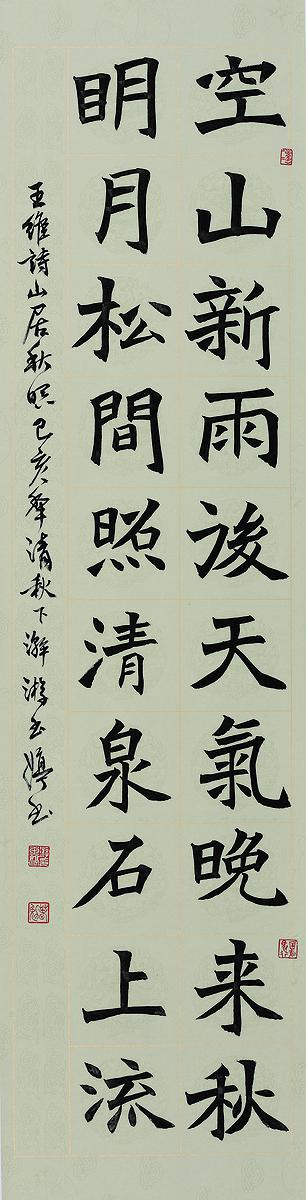 空山新雨後天氣晚来秋
明月松間照清泉石上流
王維詩山居秋暝己亥年清秋下澣